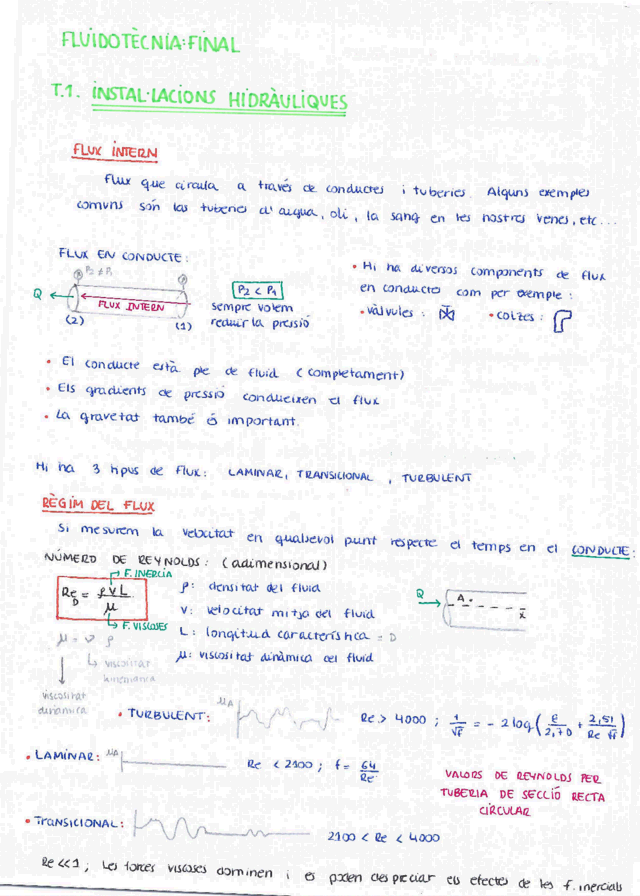 FLUIDOTÈCNIA: FINAL
T.1. INSTAL·LACIONS HIDRÀULIQUES
FLUX INTERN
Flux que circula a través de conductes i tuberies. Alguns exemples
comuns són las tuberies d'aigua, oli, la sang en les nostres venes, etc...
FLUX EN CONDUCTE:
P2 ≠ P1
Q
FLUX INTERN
(2) (1)
P2 < P1
sempre volem
reduir la pressió
• Hi ha diversos components de flux
en conductes com per exemple:
• vàlvules: • colzes:
• El conducte està ple de fluid (completament)
• Els gradients de pressió condueixen el flux
• La gravetat també és important.
Hi ha 3 tipus de flux: LAMINAR, TRANSICIONAL, TURBULENT
RÈGIM DEL FLUX
Si mesurem la velocitat en qualsevol punt respecte el temps en el CONDUCTE:
NÚMERO DE REYNOLDS: (adimensional)
F. INERCIA
Re_D = ρVL / μ
F. VISCOSES
μ = ν ρ
viscositat
kinemàtica
viscositat
dinàmica
ρ: densitat del fluid
V: velocitat mitja del fluid
L: longitud característica = D
μ: viscositat dinàmica del fluid
Q
A.
x
• TURBULENT: μA Re > 4000 ; 1/√f = -2 log(ε/2,7D + 2,51/Re √f)
• LAMINAR: μA Re < 2100 ; f = 64/Re
VALORS DE REYNOLDS PER
TUBERIA DE SECCIÓ RECTA
CIRCULAR
• TRANSICIONAL: 2100 < Re < 4000
Re << 1 ; Les forces viscoses dominen i es poden despreciar els efectes de les f. inercials